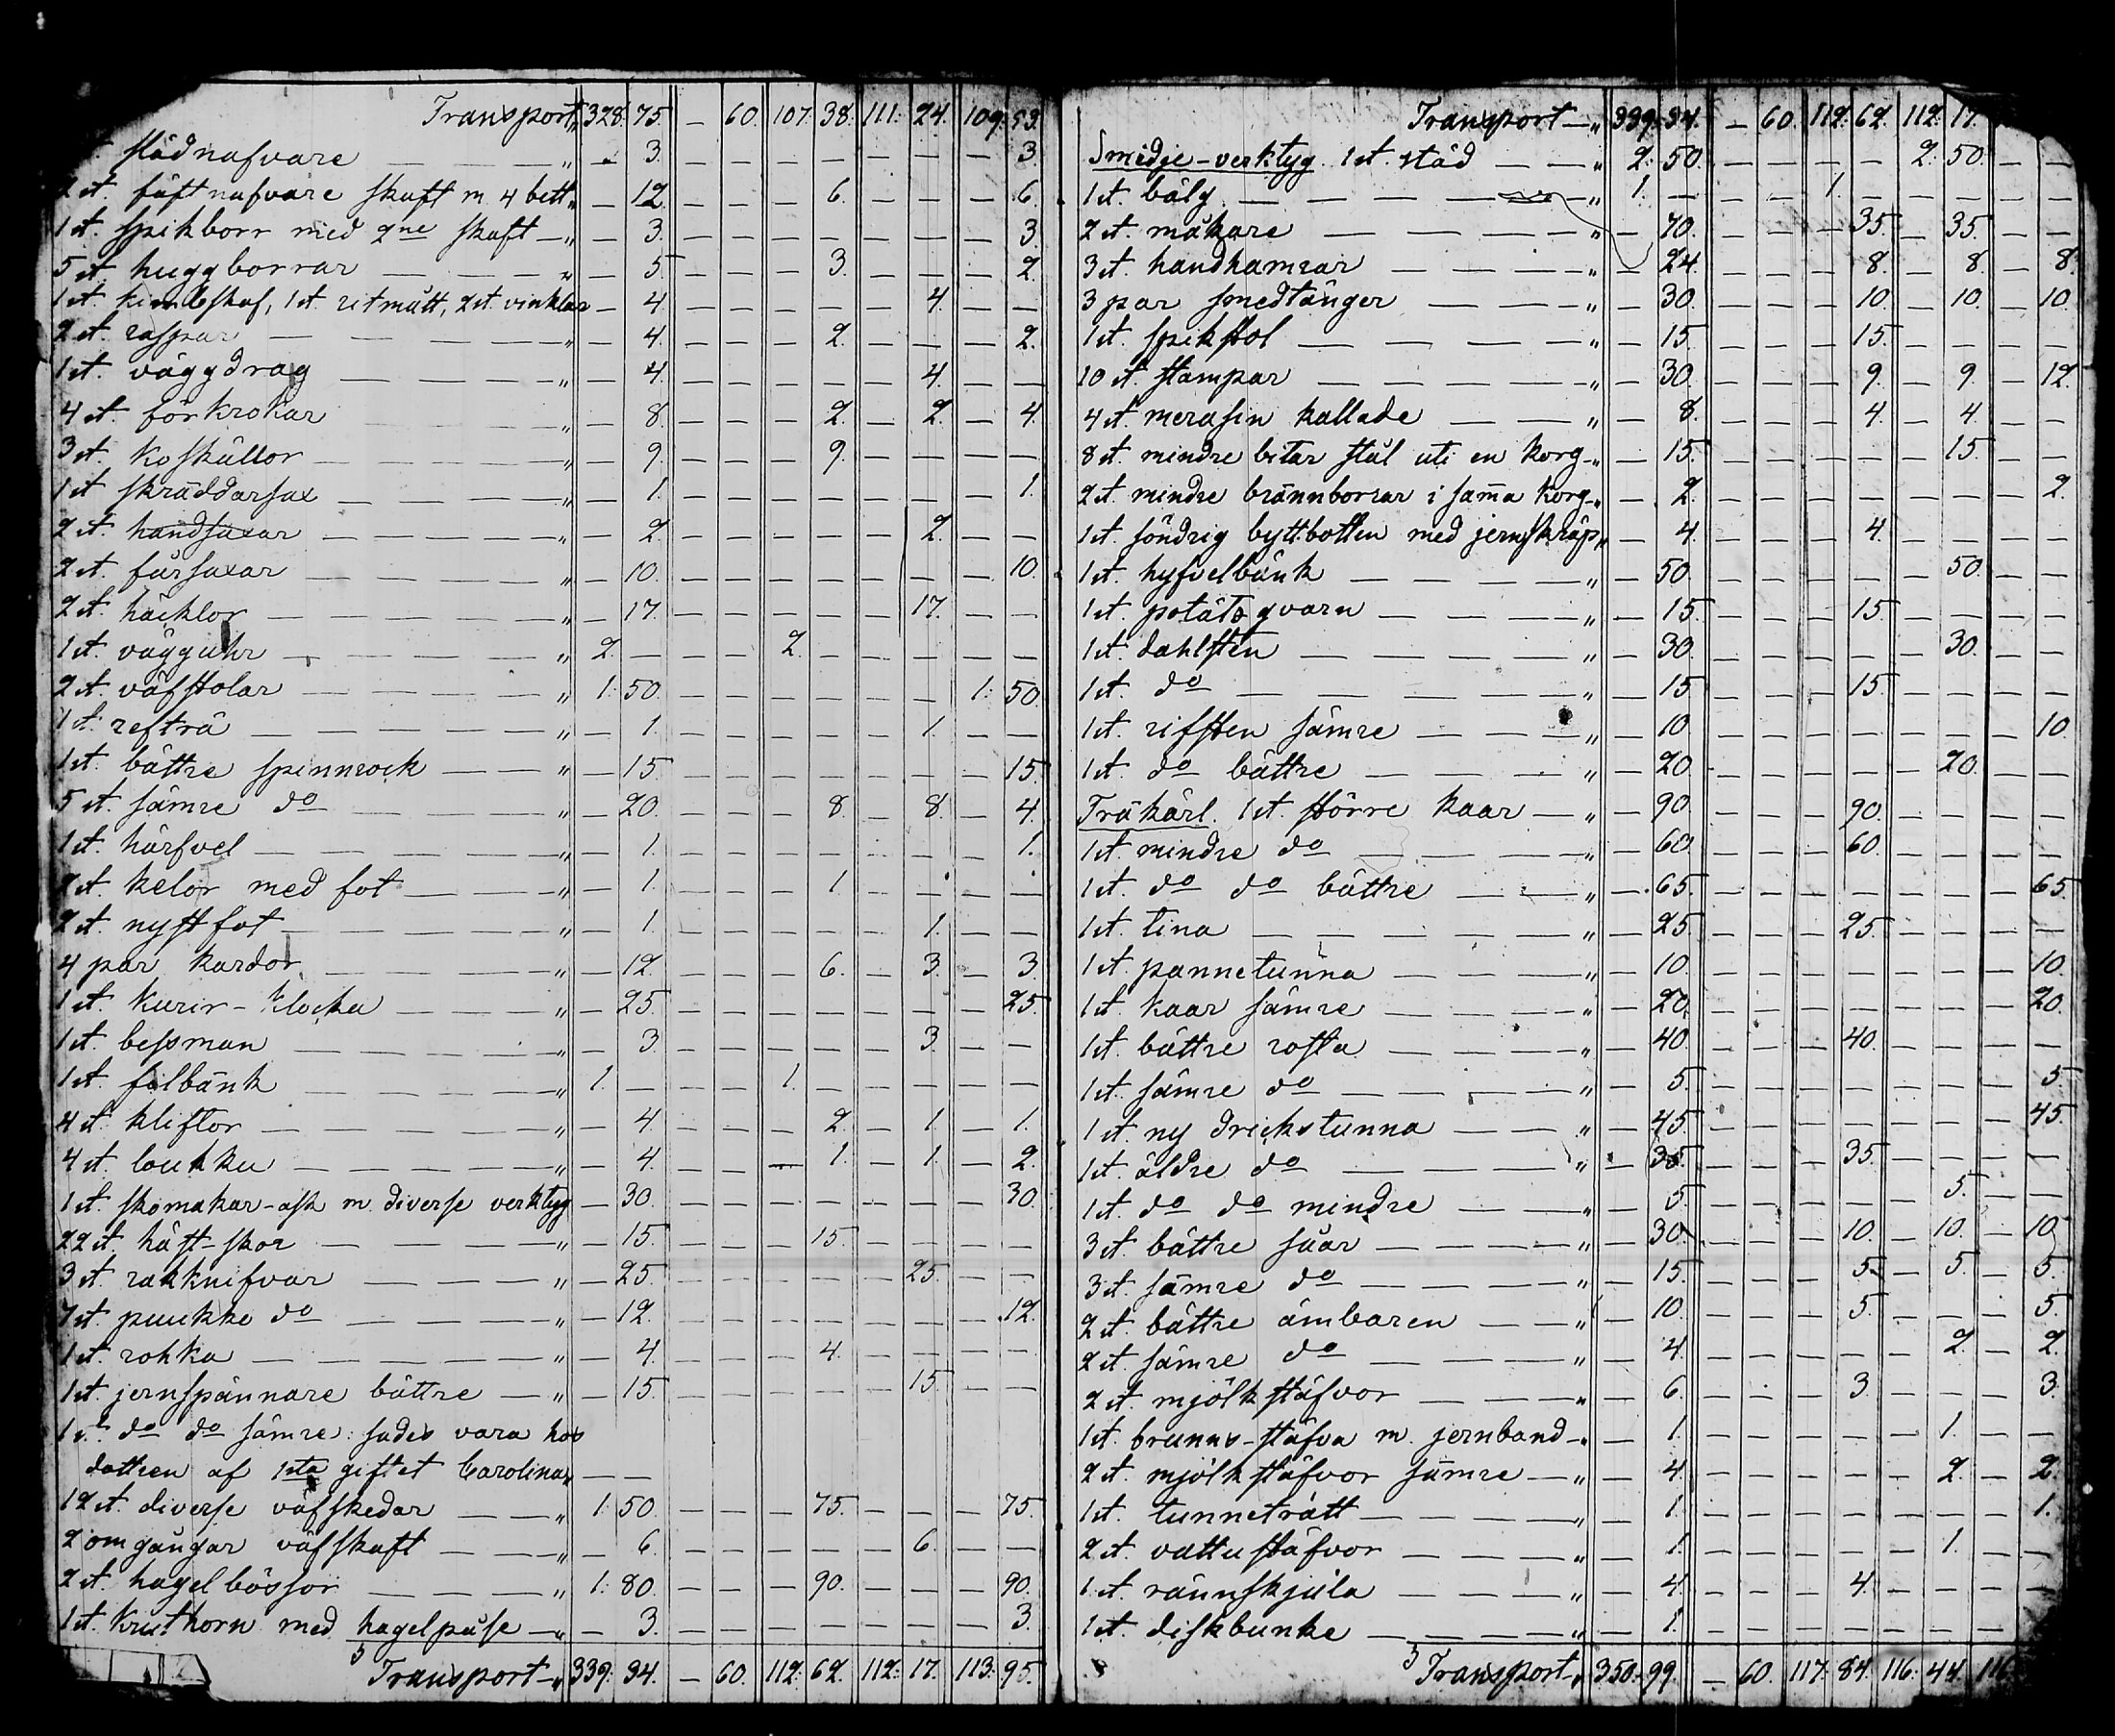 Transport „ 328. 75. — 60. 107. 38. 111. 24. 109. 53.
slädnafvare — — — „ — 3. — — — — — — — 3.
2 st. fästnafvare skaft m. 4 bett „ — 12. — — — 6. — — — 6.
1 st. spikborr med 2ne skaft — „ — 3. — — — — — — — 3.
5 st. huggborrar — — — „ — 5. — — — 3. — — — 2.
1 st. kimbskaf, 1 st. ritmått, 2 st. vinklar — 4. — — — — — 4. — —
2 st. raspar — — — „ — 4. — — — 2. — — — 2.
1 st. väggdrag — — — „ — 4. — — — — — 4. — —
4 st. förkrokar — — — „ — 8. — — — 2. — 2. — 4.
3 st. koskällor — — — „ — 9. — — — 9. — — — —
1 st. skräddarsax — — — „ — 1. — — — — — — — 1.
2 st. handsaxar — — — „ — 2. — — — — — 2. — —
2 st. fårsaxar — — — „ — 10. — — — — — — — 10.
2 st. häcklor — — — „ — 17. — — — — — 17. — —
1 st. vägguhr — — — „ 2. — — — 2. — — — — —
2 st. väfstolar — — — „ 1. 50. — — — — — — 1. 50.
1 st. refträ — — — „ — 1. — — — — — 1. — —
1 st. bättre spinnrock — — „ — 15. — — — — — — — 15.
5 st. sämre do — — — „ — 20. — — — 8. — 8. — 4.
1 st. härfvel — — — „ — 1. — — — — — — — 1.
2 st. kelor med fot — — „ — 1. — — — 1. — — — —
2 st. nystfot — — — „ — 1. — — — — — 1. — —
4 par kardor — — — „ — 12. — — — 6. — 3. — 3.
1 st. kurir-klocka — — „ — 25. — — — — — — — 25.
1 st. bessman — — — „ — 3. — — — — — 3. — —
1 st. filbänk — — — „ 1. — — — 1. — — — — —
4 st. kliftor — — — „ — 4. — — — 2. — 1. — 1.
4 st. loukku — — — „ — 4. — — — 1. — 1. — 2.
1 st. skomakar-ask m. diverse verktyg — 30. — — — — — — — 30.
22 st. häst-skor — — — „ — 15. — — — 15. — — — —
3 st. rakknifvar — — — „ — 25. — — — — — 25. — —
7 st. puukko do — — — „ — 12. — — — — — — — 12.
1 st. rohka — — — „ — 4. — — — 4. — — — —
1 st. jernspännare bättre — „ — 15. — — — — — 15. — —
1 st. do do sämre: sades vara hos
dottren af 1sta giftet Carolina „ — —
12 st. diverse väfskedar — — „ 1. 50. — — — 75. — — — 75.
2 omgångar väfskaft — — „ — 6. — — — — — 6. — —
2 st. hagelbössor — — — „ 1. 80. — — — 90. — — — 90.
1 st. kruthorn med hagelpåse — „ — 3. — — — — — — — 3.
Transport „ 339. 34. — 60. 112. 62. 112. 17. 113. 95.
Transport — „ 339. 34. — 60. 112. 62. 112. 17.
Smidje-verktyg. 1 st. städ — — „ 2. 50. — — — — 2. 50. — —
1 st. bälg. — — — „ 1. — — — 1. — — — — —
2 st. mokare — — — „ — 70. — — — 35. — 35. — —
3 st. handhamrar — — — „ — 24. — — — 8. — 8. — 8.
3 par smedtänger — — — „ — 30. — — — 10. — 10. — 10.
1 st. spikstol — — — „ — 15. — — — 15. — — — —
10 st. stampar — — — „ — 30. — — — 9. — 9. — 12.
4 st. merasin kallade — — „ — 8. — — — 4. — 4. — —
8 st. mindre bitar stål uti en korg „ — 15. — — — — — 15. — —
2 st. mindre brännborrar i samma korg „ — 2. — — — — — — — 2.
1 st. söndrig byttbotten med jernskräp „ — 4. — — — 4. — — — —
1 st. hyfvelbänk — — — „ — 50. — — — — — 50. — —
1 st. potätsqvarn — — — „ — 15. — — — 15. — — — —
1 st. dahlsten — — — „ — 30. — — — — — 30. — —
1 st. do — — — „ — 15. — — — 15. — — — —
1 st. rifsten sämre — — „ — 10. — — — — — — — 10.
1 st. do bättre — — — „ — 20. — — — — — 20. — —
Träkärl. 1 st. större kaar — „ — 90. — — — 90. — — — —
1 st. mindre do — — — „ — 60. — — — 60. — — — —
1 st. do do bättre — — „ — 65. — — — — — — — 65.
1 st. tina — — — „ — 25. — — — 25. — — — —
1 st. pannetunna — — — „ — 10. — — — — — — — 10.
1 st. kaar sämre — — — „ — 20. — — — — — — — 20.
1 st. bättre rosta — — — „ — 40. — — — 40. — — — —
1 st. sämre do — — — „ — 5. — — — — — — — 5.
1 st. ny drickstunna — — „ — 45. — — — — — — — 45.
1 st. äldre do — — — „ — 35. — — — 35. — — — —
1 st. do do mindre — — „ — 5. — — — — — 5. — —
3 st. bättre såar — — — „ — 30. — — — 10. — 10. — 10.
3 st. sämre do — — — „ — 15. — — — 5. — 5. — 5.
2 st. bättre ämbaren — — „ — 10. — — — 5. — — — 5.
2 st. sämre do — — — „ — 4. — — — — — 2. — 2.
2 st. mjölkstäfvor — — „ — 6. — — — 3. — — — 3.
1 st. brunns-stäfva m. jernband — „ — 1. — — — — — 1. — —
2 st. mjölkstäfvor sämre — „ — 4. — — — — — 2. — 2.
1 st. tunnetratt — — — „ — 1. — — — — — — — 1.
2 st. vattustäfvor — — — „ — 1. — — — — — 1. — —
1 st. rännskjula — — — „ — 4. — — — 4. — — — —
1 st. diskbunke — — — „ — 1. — — — — — — —
Transport — „ 350. 99. — 60. 117. 84. 116. 44. 116.